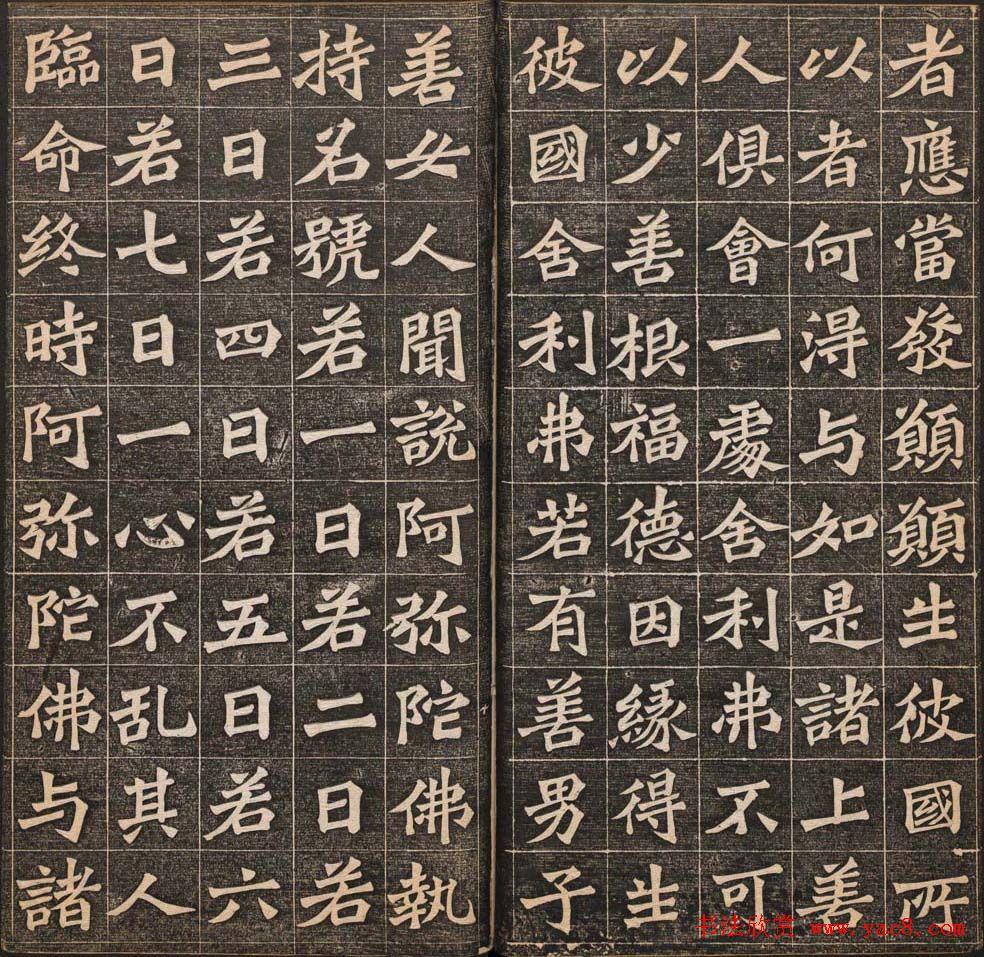 者應當發願願生彼國所
以者何淂与如是諸上善
人俱會一處舍利弗不可
以少善根福德因緣得生
彼國舍利弗若有善男
子
善女人聞說阿弥陀佛執
持名號若一日若二日若
三日若四日若五日若六
日若七日一心不乱其人
臨命终時阿弥陀佛与諸
书法欣赏 www.yac8.com